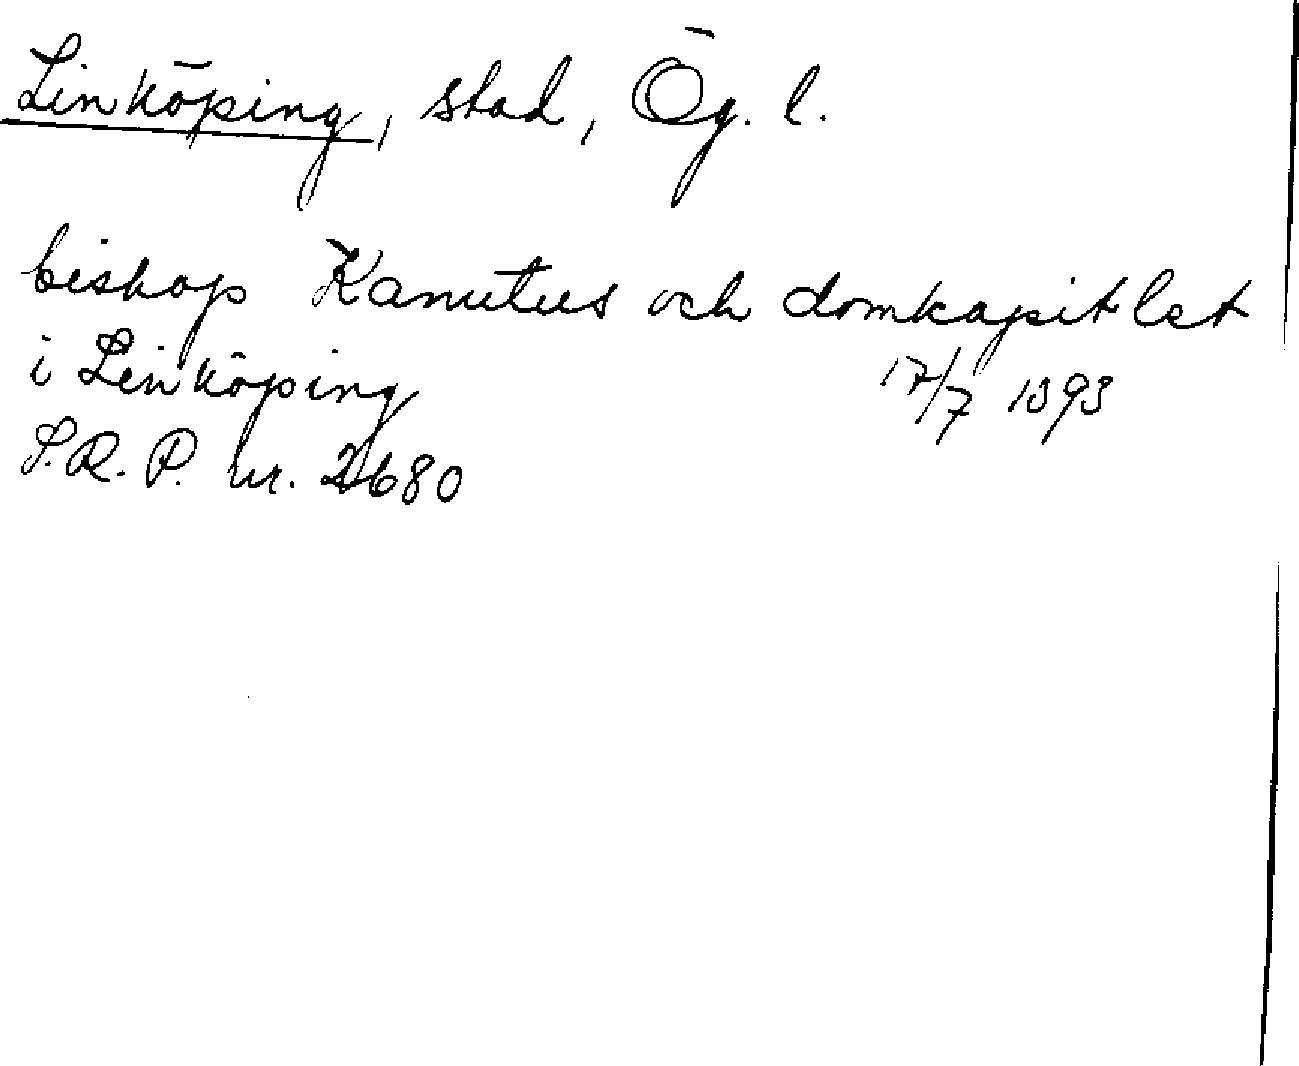 Linköping, stad, Ög. l.
biskop Kanutus och domkapitlet
i Linköping 17/7 1393
S.R.P. nr. 2680